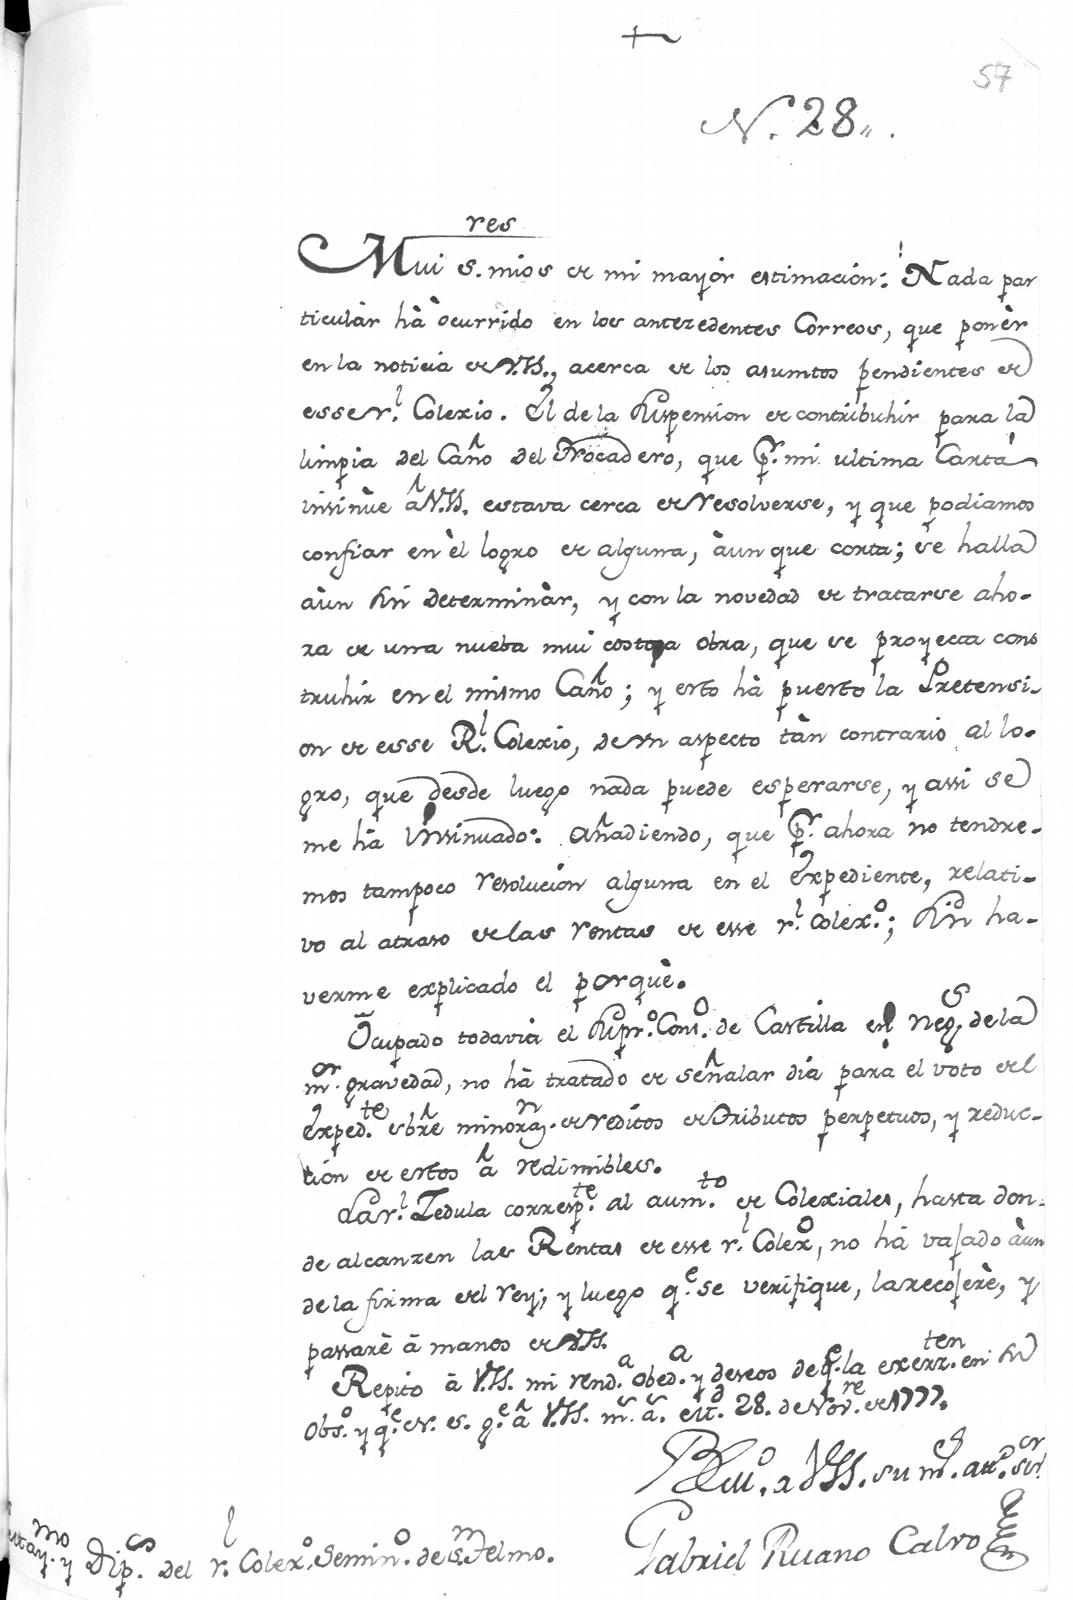 57
N. 28.
Mui s.res mios de mi mayòr estimaciòn: Nada par
ticulàr hà òcurrido en los antezedentes Correos, que ponèr
en la noticia de V.SS., acerca de los asumtos pendientes de
esse r.l Colexio. El de la suspension de contribuhir para la
limpia del Caño del Trocadero, que p.r mi ultima Carta
insinùe â V.SS. estava cerca de resolverse, y que podiamos
confiar en èl logro de alguna, àunque corta; se halla
aùn sin determinàr, y con la novedad de tratarse aho-
ra de una nueba mui costosa obra, que se proyecta cons
truhir en el mismo Caño; y esto hà puesto la Pretensi-
on de esse R.l Colexio, de un aspecto tàn contrario al lo-
gro, que desde luego nada puede esperarse, y assi se
me hà insinuado: añadiendo, que p.r ahora no tendre-
mos tampoco resoluciòn alguna en el expediente, relati-
vo al atraso de las rentas de esse r.l Colex.o; sin ha-
verme explicado el porquè.
Ocupado todavia el Supr.o Cons.o de Castilla en neg.s de la
m.or gravedad, no hà tratado de señalar dia para el voto del
exped.te sbrê minoraz.n de reditos de Tributos perpetuos, y reduc-
ciòn de estos â redimibles.
La r.l Zedula corresp.te al aum.to de Colexiales, hasta don-
de alcanzen las Rentas de esse r.l Colex.o, no hà vajado àun
de la firma del Rey; y luego q.e se verifique, la recojerè, y
passarè à manos de V.SS.
Repito à V.SS. mi rend.a obed.a y deseos de q.e la exerz.ten en su
obs.o y q.e N. S. g.e â V.SS. m.s a.s Mad.d 28. de Nov.re de 1777.
BLM. a V.SS. su m.s att.o ser.or
Gabriel Ruano Calvo
S.res May.mo y Dip.s del r.l Colex.o Semin.o de S. Telmo.